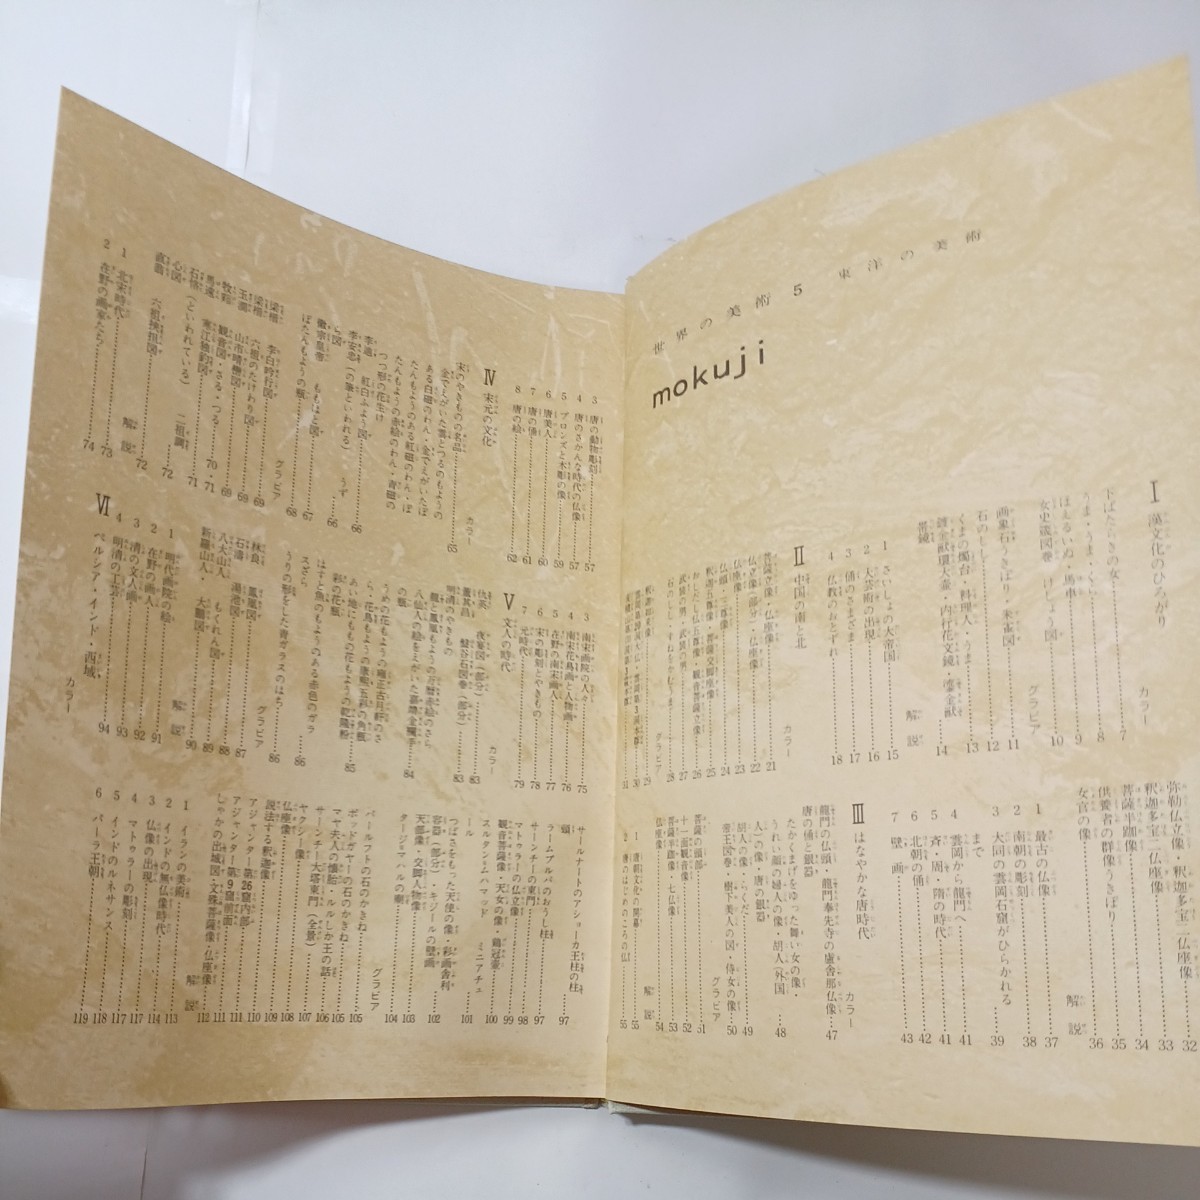 世界の美術 5 東洋の美術
mokuji
I 漢文化のひろがり
カラー
下ばたらきの女 7
8
ほえるいぬ・馬車 9
女史箴図巻 けしょう図 10
グラビア
11
石のしし 12
くまの燭台・料理人・うま 13
14
解説
1 さいしょの大帝国 15
2 大芸術の出現 16
3 俑のさまざま 17
4 仏教のおとずれ 18
II 中国の南と北
カラー
菩薩立像・仏座像 21
仏立像(部分)・仏座像 22
仏座像 23
24
25
26
27
28
グラビア
29
30
31
弥勒仏立像・仏座像 32
釈迦多宝二仏座像 33
菩薩半跏像 34
供養者の群像うきぼり 35
女官の像 36
解説
1 最古の仏像 37
2 南朝の彫刻 38
3 大同の雲岡石窟がひらかれる
まで 39
4 雲岡から龍門へ 41
5 斉・周・隋の時代 41
6 北朝の俑 42
7 壁画 43
III はなやかな唐時代
カラー
龍門の仏頭・龍門奉先寺の盧舎那仏像 47
唐の俑と銀器
たかくまげをゆった舞い女の像・
うれい顔の婦人の像・胡人(外国
人)の像・唐の銀器 48
胡人の像・らくだ 49
帝王図巻・樹下美人の図・侍女の像 50
グラビア
菩薩の頭部 51
十一面観音像 52
菩薩半跏像・七仏像 53
仏座像 54
解説
1 唐朝文化の開幕 55
2 唐のはじめのころの仏 55
3 唐の動物彫刻 57
4 唐のさかんな時代の仏像 57
5 ブロンズと木彫の像 59
6 唐美人 60
7 唐の俑 61
8 唐の絵 62
IV 宋元の文化
カラー
宋のやきものの名品 65
金でえがいた雲とつるのもようの
ある白磁のわん・金でえがいたぼ
たんもようのある紅磁のわん・ぼ
たんもようの赤絵のわん・青磁の
つつ形の花生け 66
李迪 紅白ふよう図 66
李安忠(の筆といわれる) うず
ら図 67
徽宗皇帝 ももはと図 67
ぼたんもようの瓶 68
グラビア
梁楷 李白吟行図 69
梁楷 六祖のたけわり図 69
玉澗 山市晴巒図 69
牧谿 観音図・さる・つる 70・71
馬遠 寒江独釣図 71
石恪(といわれている) 二祖調
心図 72
直翁 六祖挾担図 72
解説
1 北宋時代 73
2 在野の画家たち 74
3 南宋画院の人々 75
4 南宋花鳥画と人物画 76
5 在野の南宋画人 77
6 宋の彫刻とやきもの 78
7 元時代 79
V 文人の時代
カラー
仇英 夜宴図(部分) 83
董其昌 盤谷石図巻(部分) 83
明清のやきもの
龍と鳳凰もようの万暦赤絵のさら
八仙人の絵をえがいた嘉靖金襴手
の瓶 84
うめの花もようの雍正古月軒のさ
ら・花鳥もようの康熙五彩の角瓶
あい地にももの花もようの乾隆粉
彩の花瓶 85
はすと魚のもようのある赤色のガラ
スざら 86
うりの形をした青ガラスのはち 86
グラビア
林良 鳳凰図 87
石濤 湯池図 88
八大山人 もくれん図 89
新羅山人・大鵬図 90
解説
1 明代画院の絵 91
2 在野の画人 92
3 清の文人画 93
4 明清の工芸 94
VI ペルシア・インド・西域
カラー
サールナートのアショーカ王柱の柱
頭 97
ラームプルバのおうし柱 97
サーンチーの東門 98
マトゥラーの仏立像 99
観音菩薩像・天女の像・鶏冠壺 100
スルタンムハマッド ミニアチュ
ール 101
つばさをもった天使の像・彩画舎利
容器(部分)・キジールの壁画 102
天部像・交脚人物像 103
タージ=マハルの廟 104
グラビア
バールフトの石のかきね 105
ボッドガヤーの石のかきね 105
マヤ夫人の懐胎・ルルしか王の話 106
サーンチー大塔東門(全景) 107
ヤクシー像 108
仏座像 109
説法する釈迦像 110
アジャンター第26窟内部 111
アジャンター・第9窟前面 111
しゃかの出城図・文殊菩薩像・仏座像 112
解説
1 イランの美術 113
2 インドの無仏像時代 114
3 仏像の出現 117
4 マトゥラーの彫刻 117
5 インドのルネサンス 118
6 パーラ王朝 119